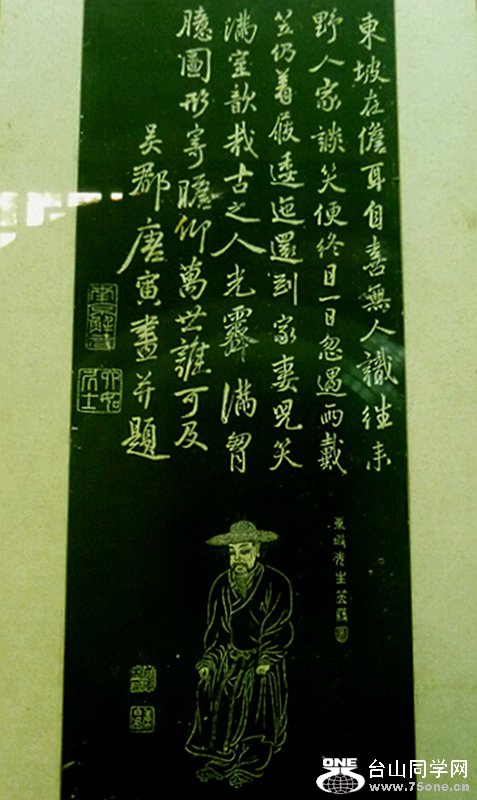 東坡在儋耳自喜無人識往来
野人家談笑便終日一日忽遇雨戴
笠仍着屐逶迤還到家妻兒笑
滿室歆哉古之人光霽滿胷
臆圖形寄瞻仰萬世誰可及
吳郡唐寅畫并題
南京解元
六如居士
東坡先生笠屐圖
ONE
台山同学网
www.75one.cn